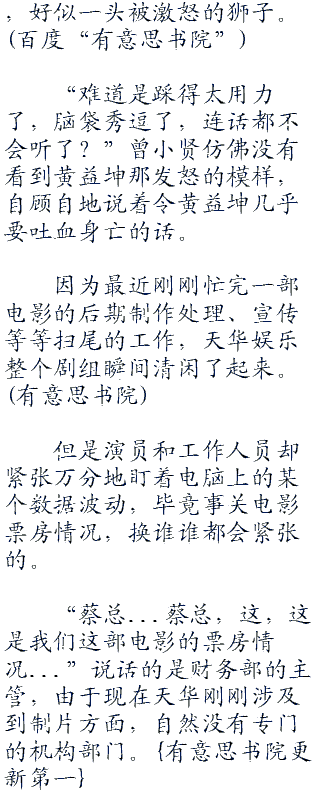 ，好似一头被激怒的狮子。
(百度“有意思书院”)
“难道是踩得太用力
了，脑袋秀逗了，连话都不
会听了？”曾小贤仿佛没有
看到黄益坤那发怒的模样，
自顾自地说着令黄益坤几乎
要吐血身亡的话。
因为最近刚刚忙完一部
电影的后期制作处理、宣传
等等扫尾的工作，天华娱乐
整个剧组瞬间清闲了起来。
(有意思书院)
但是演员和工作人员却
紧张万分地盯着电脑上的某
个数据波动，毕竟事关电影
票房情况，换谁谁都会紧张
的。
“蔡总...蔡总，这，这
是我们这部电影的票房情
况...”说话的是财务部的主
管，由于现在天华刚刚涉及
到制片方面，自然没有专门
的机构部门。{有意思书院更
新第一}